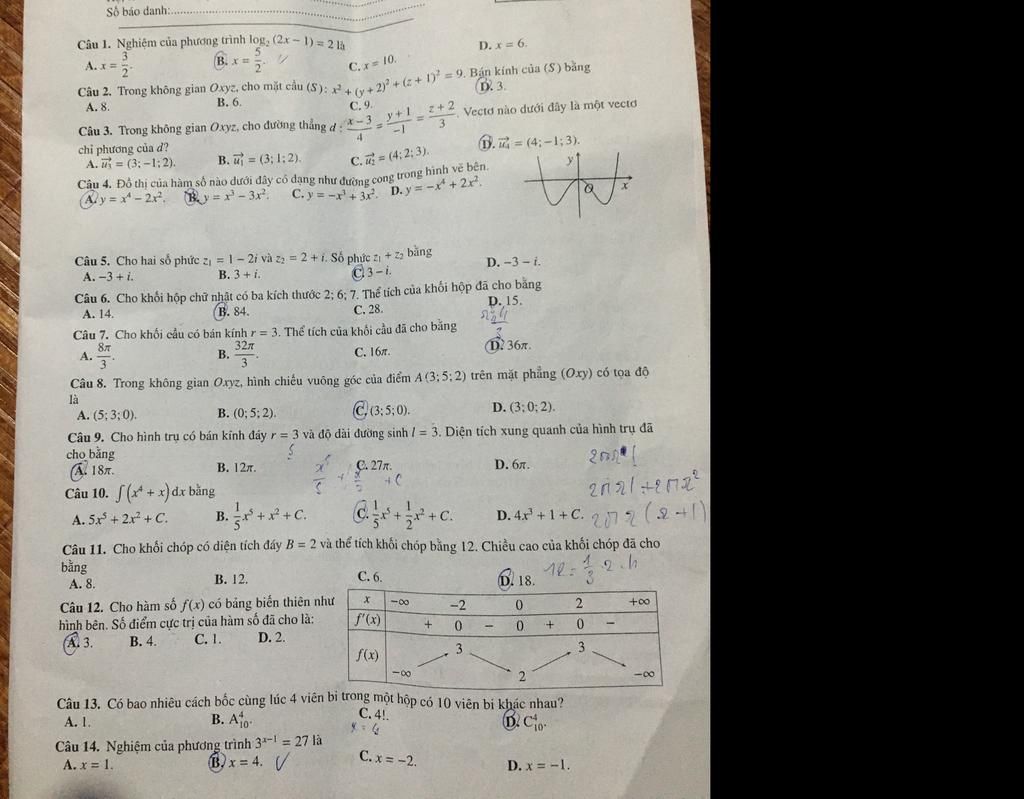 Số báo danh:
Câu 1. Nghiệm của phương trình log₂ (2x − 1) = 2 là
A. x = 3/2. B. x = 5/2. C. x = 10. D. x = 6.
Câu 2. Trong không gian Oxyz, cho mặt cầu (S): x² + (y + 2)² + (z + 1)² = 9. Bán kính của (S) bằng
A. 8. B. 6. C. 9. D. 3.
Câu 3. Trong không gian Oxyz, cho đường thẳng d : (x − 3)/4 = (y + 1)/−1 = (z + 2)/3. Vectơ nào dưới đây là một vectơ
chỉ phương của d?
A. u₃ = (3; −1; 2). B. u₁ = (3; 1; 2). C. u₂ = (4; 2; 3). D. u₄ = (4; −1; 3).
Câu 4. Đồ thị của hàm số nào dưới đây có dạng như đường cong trong hình vẽ bên.
A. y = x⁴ − 2x². B. y = x³ − 3x². C. y = −x³ + 3x². D. y = −x⁴ + 2x².
y
O x
Câu 5. Cho hai số phức z₁ = 1 − 2i và z₂ = 2 + i. Số phức z₁ + z₂ bằng
A. −3 + i. B. 3 + i. C. 3 − i. D. −3 − i.
Câu 6. Cho khối hộp chữ nhật có ba kích thước 2; 6; 7. Thể tích của khối hộp đã cho bằng
A. 14. B. 84. C. 28. D. 15.
Câu 7. Cho khối cầu có bán kính r = 3. Thể tích của khối cầu đã cho bằng
A. 8π/3. B. 32π/3. C. 16π. D. 36π.
Câu 8. Trong không gian Oxyz, hình chiếu vuông góc của điểm A (3; 5; 2) trên mặt phẳng (Oxy) có tọa độ
là
A. (5; 3; 0). B. (0; 5; 2). C. (3; 5; 0). D. (3; 0; 2).
Câu 9. Cho hình trụ có bán kính đáy r = 3 và độ dài đường sinh l = 3. Diện tích xung quanh của hình trụ đã
cho bằng
A. 18π. B. 12π. C. 27π. D. 6π.
Câu 10. ∫(x⁴ + x) dx bằng
A. 5x⁵ + 2x² + C. B. 1/5x⁵ + x² + C. C. 1/5x⁵ + 1/2x² + C. D. 4x³ + 1 + C.
Câu 11. Cho khối chóp có diện tích đáy B = 2 và thể tích khối chóp bằng 12. Chiều cao của khối chóp đã cho
bằng
12 = 1/3 2 . h
A. 8. B. 12. C. 6. D. 18.
Câu 12. Cho hàm số f(x) có bảng biến thiên như
hình bên. Số điểm cực trị của hàm số đã cho là:
A. 3. B. 4. C. 1. D. 2.
x −∞ −2 0 2 +∞
f′(x) + 0 − 0 + 0 −
f(x) −∞ 3 2 3 −∞
Câu 13. Có bao nhiêu cách bốc cùng lúc 4 viên bi trong một hộp có 10 viên bi khác nhau?
A. 1. B. A⁴₁₀. C. 4!. D. C⁴₁₀.
x = 4
Câu 14. Nghiệm của phương trình 3ˣ⁻¹ = 27 là
A. x = 1. B. x = 4. C. x = −2. D. x = −1.